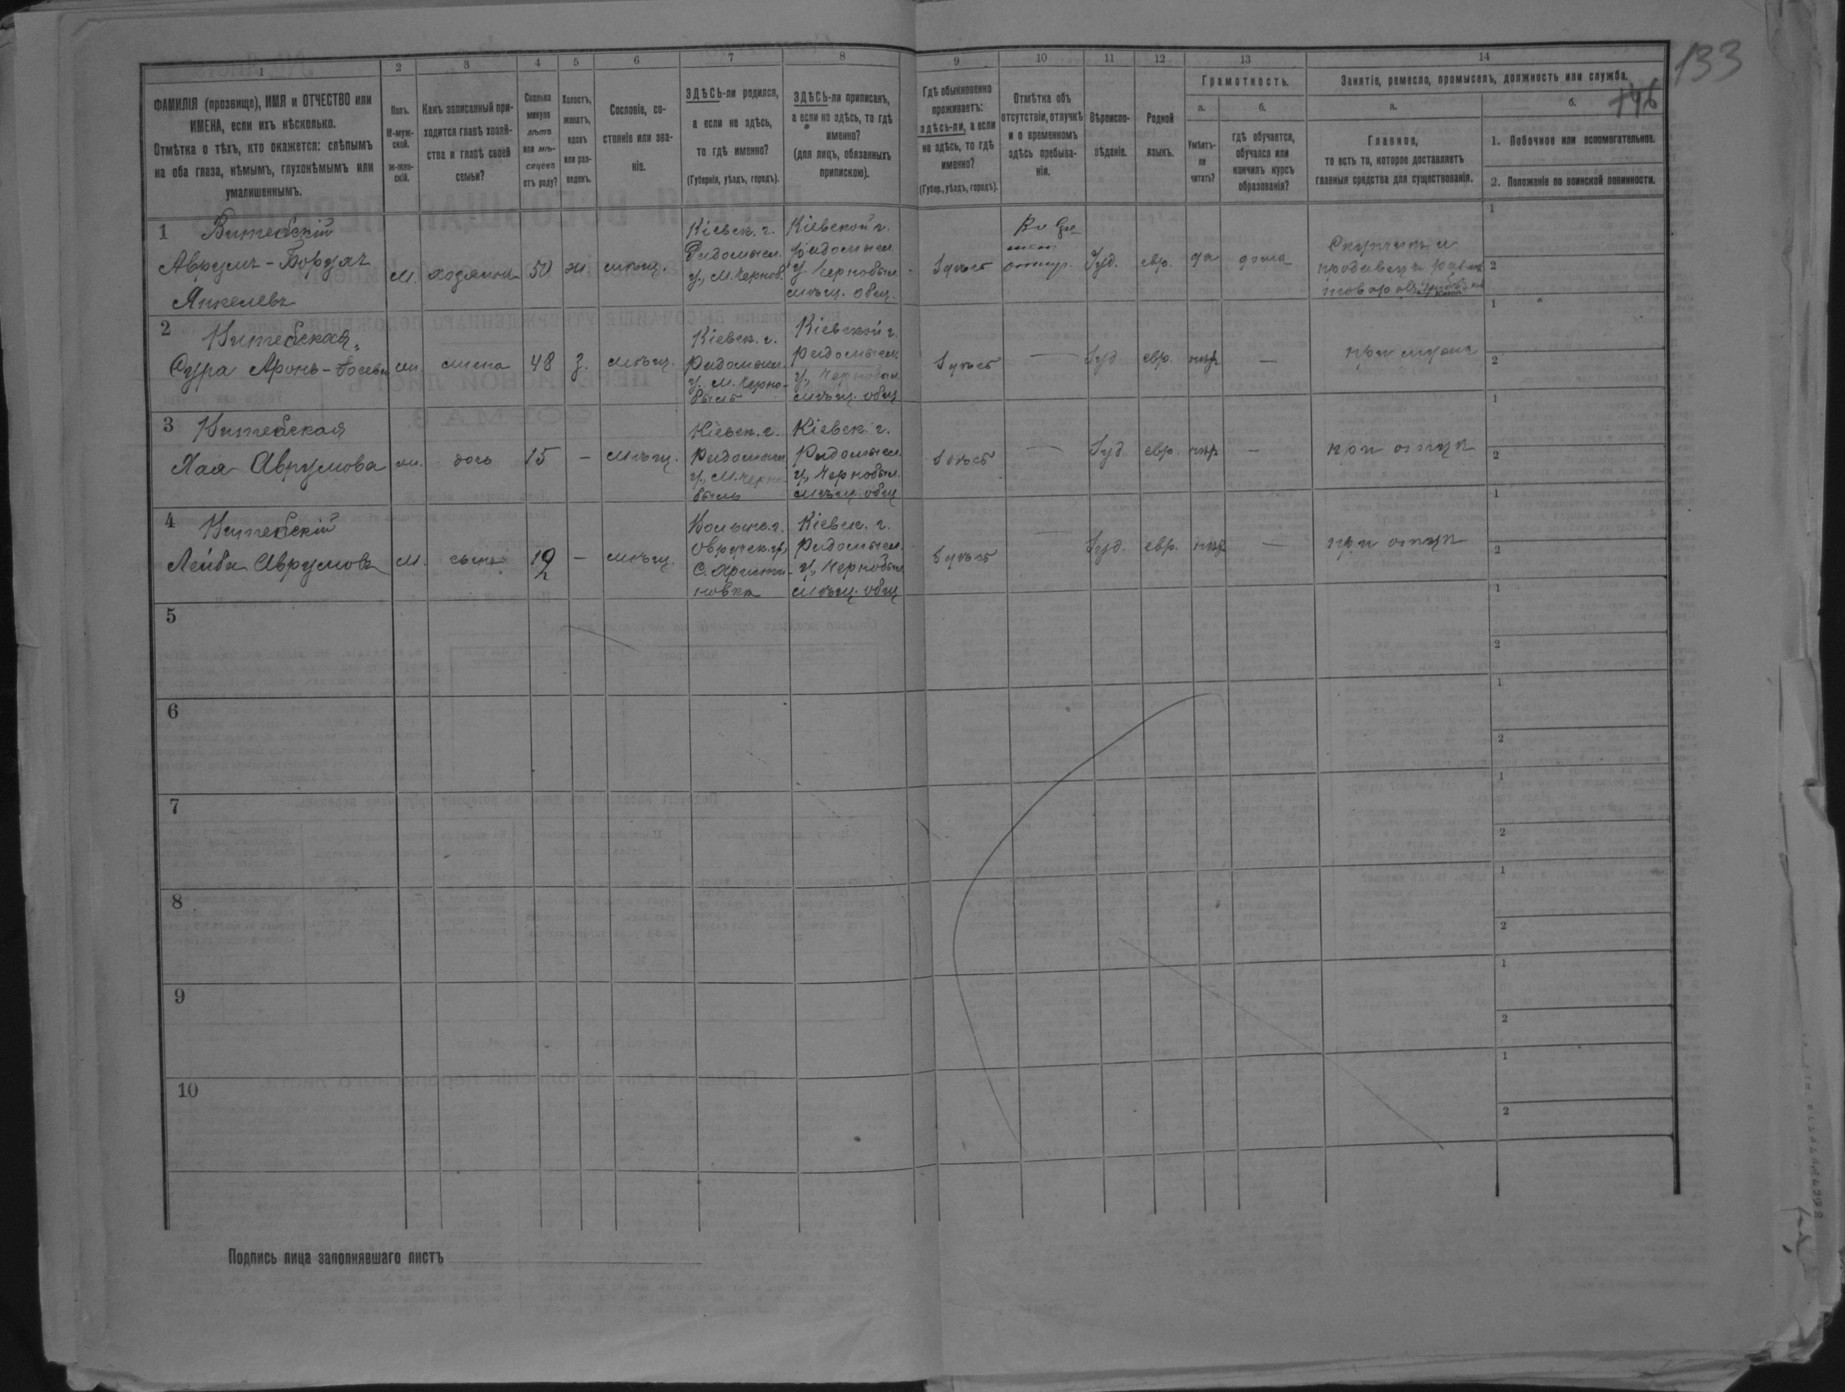 133
146
1 2 3 4 5 6 7 8 9 10 11 12 13 14
ФАМИЛІЯ (прозвище), ИМЯ и ОТЧЕСТВО или
ИМЕНА, если ихъ нѣсколько.
Отмѣтка о тѣхъ, кто окажется: слѣпымъ
на оба глаза, нѣмымъ, глухонѣмымъ или
умалишеннымъ.
Полъ.
М-муж-
ской.
Ж-жен-
скій.
Какъ записанный при-
ходится главѣ хозяй-
ства и главѣ своей
семьи?
Сколько
минуло
лѣтъ
или мѣ-
сяцевъ
отъ роду?
Холостъ,
женатъ,
вдовъ
или раз-
веденъ.
Сословіе, со-
стояніе или зва-
ніе.
ЗДѢСЬ-ли родился,
а если не здѣсь,
то гдѣ именно?
(Губернія, уѣздъ, городъ).
ЗДѢСЬ-ли приписанъ,
а если не здѣсь, то гдѣ
именно?
(для лицъ, обязанныхъ
припискою).
Гдѣ обыкновенно
проживаетъ:
здѣсь-ли, а если
не здѣсь, то гдѣ
именно?
(Губер., уѣздъ, городъ).
Отмѣтка объ
отсутствіи, отлучкѣ
и о временномъ
здѣсь пребыва-
ніи.
Вѣроиспо-
вѣданіе.
Родной
языкъ.
Грамотность.
а.
Умѣетъ-
ли
читать?
б.
гдѣ обучается,
обучался или
кончилъ курсъ
образованія?
Занятіе, ремесло, промыселъ, должность или служба.
а.
Главное,
то есть то, которое доставляетъ
главныя средства для существованія.
б.
1. Побочное или вспомогательное.
2. Положеніе по воинской повинности.
1 Витебскій
Аврумъ-Бордхъ
Янкелевъ
м. хозяинъ 50 ж мѣщ.
Кіевск. г.
Радомысл.
у., м. Чернобы
Кіевской г.
Радомысл.
у. Чернобыл
мѣщ. общ.
Здѣсь
Іуд. евр. да дома
1
2
2 Витебская
Сура Аронъ-
жена 48 з. мѣщ.
Кіевск. г.
Радомысл.
у., м. Черно-
быль
Кіевской г.
Радомысл.
у., Чернобыл
мѣщ. общ
Здѣсь — Іуд евр. —
при мужѣ
1
2
3 Витебская
Хая Аврумова
дочь 15 — мѣщ.
Кіевск. г.
Радомысл
у., м. Черно
быль
Кіевск. г.
Радомысл.
у., Чернобыл.
мѣщ. общ
Здѣсь — Іуд евр. —
при отцѣ
1
2
4 Витебскій
Лейба Аврумовъ
м. сынъ — мѣщ.
Волынс. г.
Овручск. у.,
С. Христи-
новка
Кіевск. г.
Радомысл.
у., Чернобыл
мѣщ. общ
Здѣсь — Іуд. евр. —
при отцѣ
1
2
5
1
2
6
1
2
7
1
2
8
1
2
9
1
2
10
1
2
Подпись лица заполнявшаго листъ